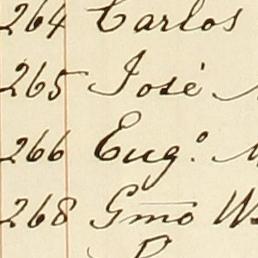 264 Carlos
265 José
266 Eugº.
268 Gmo